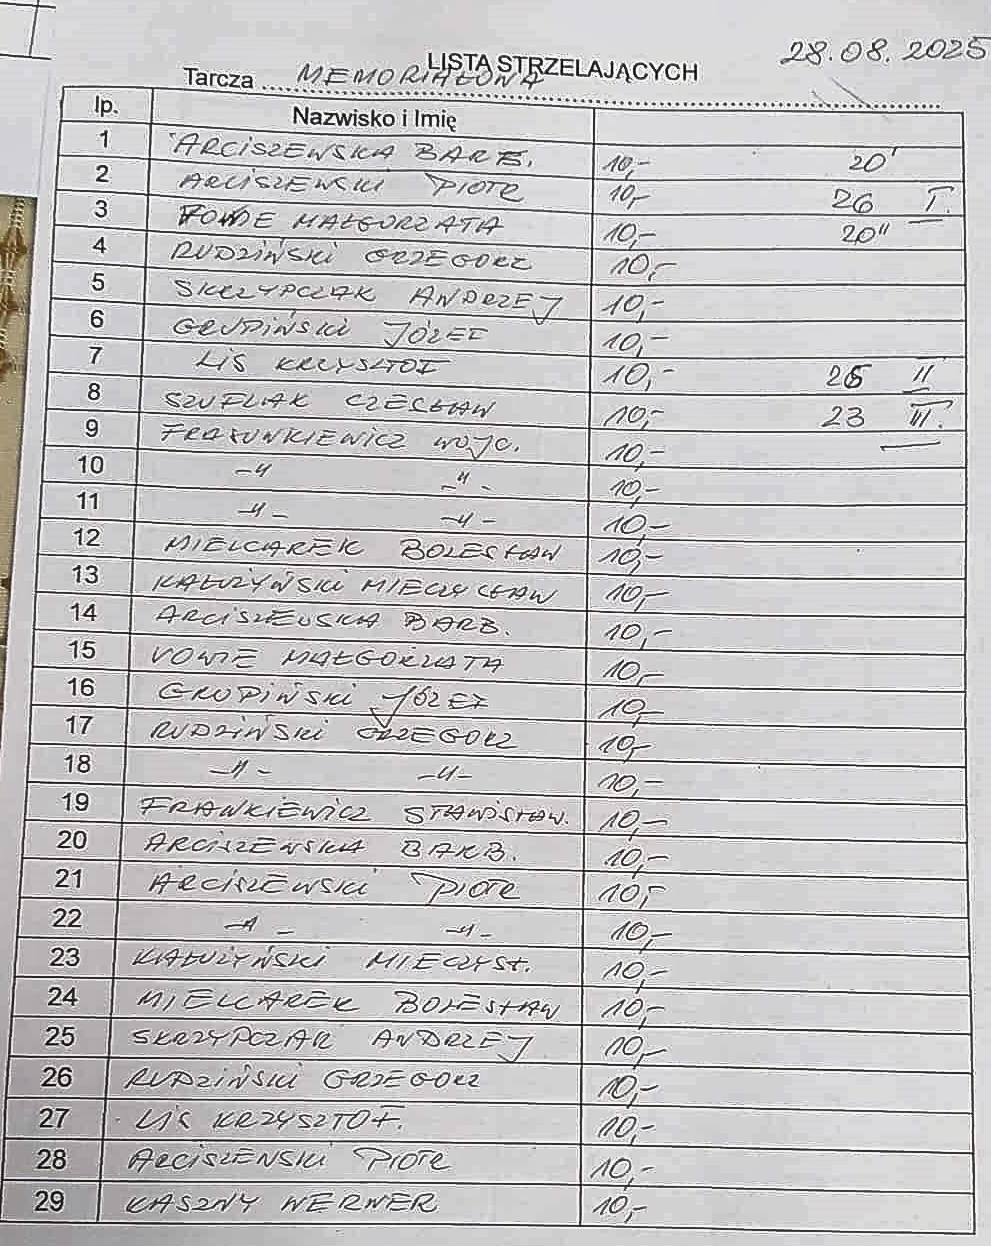 28.08.2025
LISTA STRZELAJĄCYCH
Tarcza MEMORIAŁOWA
lp. Nazwisko i Imię
1 ARCISZEWSKA BARB. 10,- 20'
2 ARCISZEWSKI PIOTR 10,- 26 I.
3 MAŁGORZATA 10,- 20"
4 RUDZIŃSKI GRZEGORZ 10,-
5 SKRZYPCZAK ANDRZEJ 10,-
6 GRUPIŃSKI JÓZEF 10,-
7 LIS KRZYSZTOF 10,- 25 II
8 SZUFLAK CZESŁAW 10,- 23 III.
9 FRASUNKIEWICZ WOJC. 10,-
10 -"- -"- 10,-
11 -"- -"- 10,-
12 MIELCAREK BOLESŁAW 10,-
13 KAŁUŻYŃSKI MIECZYSŁAW 10,-
14 ARCISZEWSKA BARB. 10,-
15 MAŁGORZATA 10,-
16 GRUPIŃSKI JÓZEF 10,-
17 RUDZIŃSKI GRZEGORZ 10,-
18 -"- -"- 10,-
19 FRANKIEWICZ STANISŁAW. 10,-
20 ARCISZEWSKA BARB. 10,-
21 ARCISZEWSKI PIOTR 10,-
22 -"- -"- 10,-
23 KAŁUŻYŃSKI MIECZYSŁ. 10,-
24 MIELCAREK BOLESŁAW 10,-
25 SKRZYPCZAK ANDRZEJ 10,-
26 RUDZIŃSKI GRZEGORZ 10,-
27 LIS KRZYSZTOF. 10,-
28 ARCISZEWSKI PIOTR 10,-
29 KASZNY WERNER 10,-